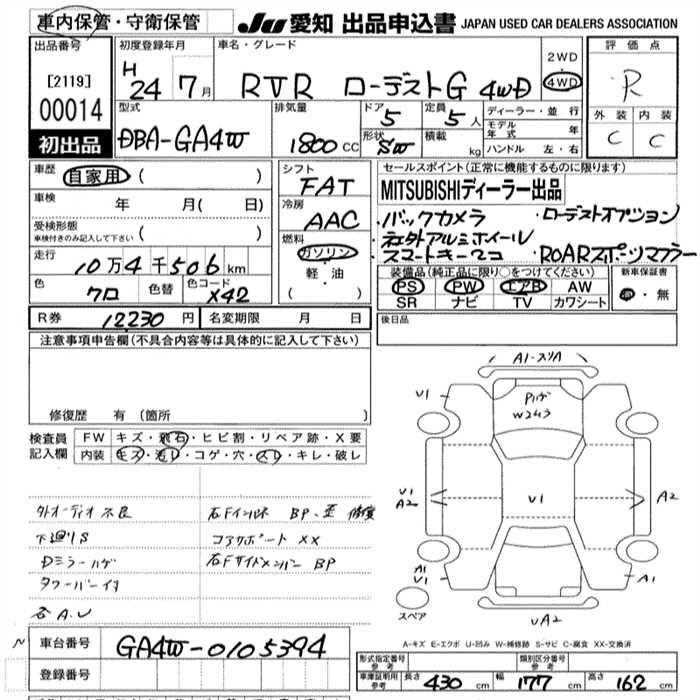 車内保管・守衛保管
JU 愛知 出品申込書 JAPAN USED CAR DEALERS ASSOCIATION
出品番号 [2119] 00014 初出品
初度登録年月 H 24 7月
車名・グレード RVR ローデストG 4WD
2WD 4WD
評価点 R
外装 C 内装 C
型式 DBA-GA4W
排気量 1800 CC
ドア 5
形状 SW
定員 5人
積載 kg
ディーラー・並行
モデル年式 年
ハンドル 左・右
車歴 自家用 ( )
車検 年 月( 日)
受検形態 車検付きのみ記入して下さい ( )
走行 10万4千506km
色 クロ 色替 色コード X42
シフト FAT
冷房 AAC
燃料 ガソリン
軽・油
( )
セールスポイント(正常に機能するものに限ります)
MITSUBISHIディーラー出品
・バックカメラ ・ローデストオプション
・社外アルミホイール
・スマートキー2コ ・ROARスポーツマフラー
装備品(純正品に限り○をつけてください)
PS PW エアB AW
SR ナビ TV カワシート
新車保証書 有・無
R券 12230円 名変期限 月 日
後日品
注意事項申告欄(不具合内容等は具体的に記入して下さい)
修復歴 有 (箇所
検査員記入欄
FW キズ・飛石・ヒビ割・リペア跡・X要
内装 キズ・汚レ・コゲ・穴・スレ・キレ・破レ
外オーディオ不良
下廻りS
Dミラーハゲ
タワーバー付
各A.U
右Fインパネ BP・歪 修復
コアサポート XX
右Fサイドメンバー BP
A1-スリA
U1
Pハゲ
W2ｷｽ
U1
A2
U1
A2
A1
U1
A1
UA2
スペア
A-キズ E-エクボ U-凹み W-補修跡 S-サビ C-腐食 XX-交換済
車台番号 GA4W-0105394
登録番号
形式指定番号 参考
類別区分番号 参考
車庫証明用 参考 長さ 430cm 幅 177cm 高さ 162cm